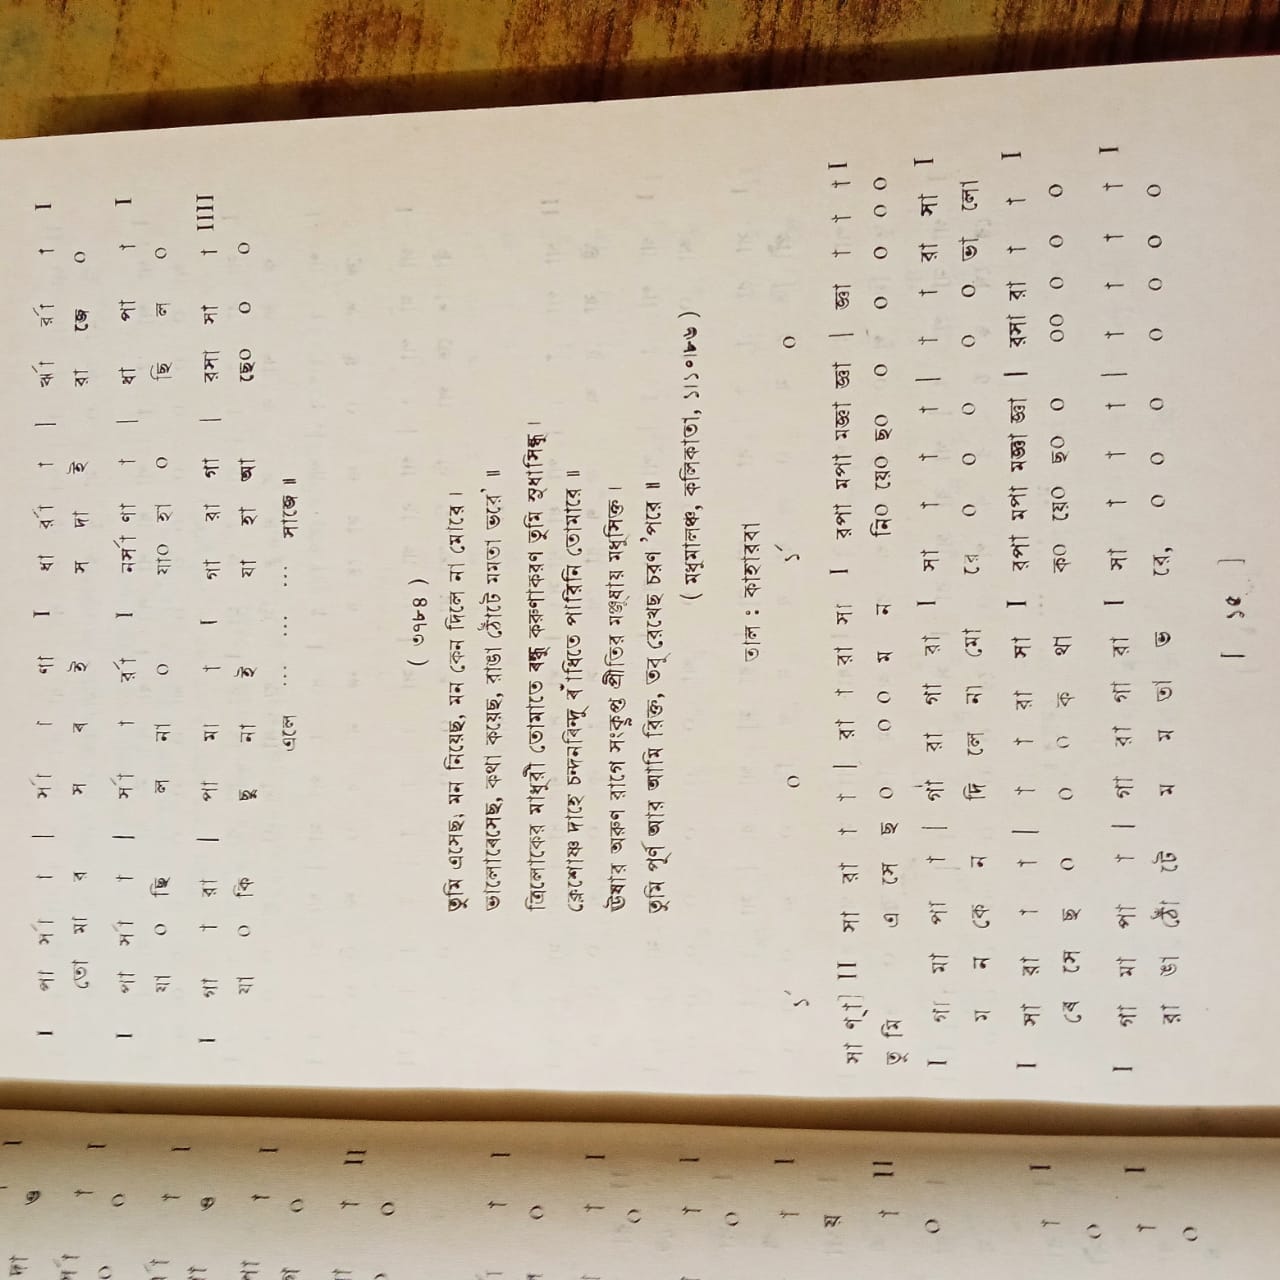 I পা র্সা র্সা া | র্সা া ণা I ধা র্রা া | র্ঋা র্রা া I
তো মা র স ব ই স দা ই রা জে ০
I পা র্সা র্সা া | র্সা া র্রা I নর্সা ণা া | ধা পা া I
যা ০ ছি ল না ০ যা০ হা ০ ছি ল ০
I গা া রা | পা মা া I গা রা গা | রসা সা া IIII
যা ০ কি ছু না ই যা হা আ ছে০ ০ ০
এলে ... ... ... সাজে ॥
( ৩৭৮৪ )
তুমি এসেছ, মন নিয়েছ, মন কেন দিলে না মোরে ।
ভালোবেসেছ, কথা কয়েছ, রাঙা ঠোঁটে মমতা ভরে' ॥
ত্রিলোকের মাধুরী তোমাতে বন্ধু করুণাকরণ তুমি সুধাসিন্ধু ।
ক্লেশোষ্ণ দাহে চন্দনবিন্দু বাঁধিতে পারিনি তোমারে ॥
ঊষার অরুণ রাগে সংক্লপ্ত প্রীতির মঞ্জুষায় মধুসিক্ত ।
তুমি পূর্ণ আর আমি রিক্ত, তবু রেখেছ চরণ 'পরে ॥
( মধুমালঞ্চ, কলিকাতা, ১।১০।৮৬ )
তাল : কাহারবা
১´ ০ ১´ ০
সা ণ্া II সা রা া া | রা া রা সা I রপা মপা মজ্ঞা জ্ঞা | জ্ঞা া া া I
তু মি এ সে ছ ০ ০ ০ ম ন নি০ য়ে০ ছ০ ০ ০ ০ ০ ০
I গা মা পা া | গা রা গা রা I সা া া া | া া রা সা I
ম ন কে ন দি লে না মো রে ০ ০ ০ ০ ০ ভা লো
I সা রা া া | া া রা সা I রপা মপা মজ্ঞা জ্ঞা | রসা রা া া I
বে সে ছ ০ ০ ০ ক থা ক০ য়ে০ ছ০ ০ ০০ ০ ০ ০
I গা মা পা া | গা রা গা রা I সা া া া | া া া া I
রা ঙা ঠোঁ টে ম ম তা ভ রে, ০ ০ ০ ০ ০ ০ ০
[ ১৫ ]